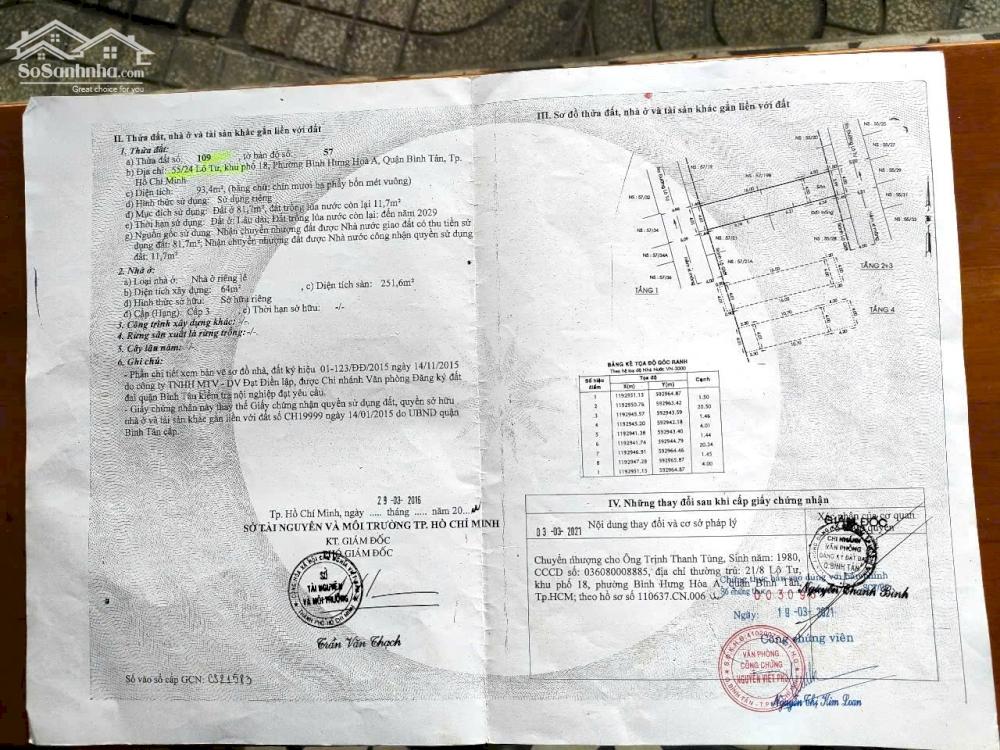 SoSanhnha.com
Great choice for you
II. Thửa đất, nhà ở và tài sản khác gắn liền với đất
1. Thửa đất:
a) Thửa đất số: 109 , tờ bản đồ số: 57
b) Địa chỉ: 55/24 Lô Tư, khu phố 18, Phường Bình Hưng Hoà A, Quận Bình Tân, Tp.
Hồ Chí Minh
c) Diện tích: 93,4m², (bằng chữ: chín mươi ba phẩy bốn mét vuông)
d) Hình thức sử dụng: Sử dụng riêng
đ) Mục đích sử dụng: Đất ở 81,7m², đất trồng lúa nước còn lại 11,7m²
e) Thời hạn sử dụng: Đất ở: Lâu dài; Đất trồng lúa nước còn lại: đến năm 2029
g) Nguồn gốc sử dụng: Nhận chuyển nhượng đất được Nhà nước giao đất có thu tiền sử
dụng đất: 81,7m²; Nhận chuyển nhượng đất được Nhà nước công nhận quyền sử dụng
đất: 11,7m²
2. Nhà ở:
a) Loại nhà ở: Nhà ở riêng lẻ
b) Diện tích xây dựng: 64m² , c) Diện tích sàn: 251,6m²
d) Hình thức sở hữu: Sở hữu riêng
đ) Cấp (Hạng): Cấp 3 , e) Thời hạn sở hữu: -/-
3. Công trình xây dựng khác: -/-
4. Rừng sản xuất là rừng trồng: -/-
5. Cây lâu năm: -/-
6. Ghi chú:
- Phần chi tiết xem bản vẽ sơ đồ nhà, đất ký hiệu 01-123/ĐĐ/2015 ngày 14/11/2015
do công ty TNHH MTV - DV Đạt Điền lập, được Chi nhánh Văn phòng Đăng ký đất
đai quận Bình Tân kiểm tra nội nghiệp đạt yêu cầu.
- Giấy chứng nhận này thay thế Giấy chứng nhận quyền sử dụng đất, quyền sở hữu
nhà ở và tài sản khác gắn liền với đất số CH19999 ngày 14/01/2015 do UBND quận
Bình Tân cấp.
29-03-2016
Tp. Hồ Chí Minh, ngày ..... tháng ..... năm 20...
SỞ TÀI NGUYÊN VÀ MÔI TRƯỜNG TP. HỒ CHÍ MINH
KT. GIÁM ĐỐC
PHÓ GIÁM ĐỐC
SỞ
TÀI NGUYÊN
VÀ MÔI TRƯỜNG
THÀNH PHỐ HỒ CHÍ MINH
Trần Văn Thạch
Số vào sổ cấp GCN: CS21583
III. Sơ đồ thửa đất, nhà ở và tài sản khác gắn liền với đất
TẦNG 1
TẦNG 2+3
TẦNG 4
BẢNG KÊ TỌA ĐỘ GÓC RANH
Theo hệ tọa độ Nhà Nước VN-2000
Số hiệu điểm Tọa độ Cạnh
X(m) Y(m)
1 1192951.13 592964.87 1.50
2 1192950.76 592963.42 20.50
3 1192945.57 592943.59 1.46
4 1192945.20 592942.18 4.01
5 1192941.38 592943.40 1.44
6 1192941.74 592944.79 20.34
7 1192946.91 592964.46 1.45
8 1192947.28 592965.87 4.00
1 1192951.13 592964.87
IV. Những thay đổi sau khi cấp giấy chứng nhận
Nội dung thay đổi và cơ sở pháp lý
Xác nhận của cơ quan
03-03-2021
GIÁM ĐỐC
Chuyển nhượng cho Ông Trịnh Thanh Tùng, Sinh năm: 1980,
CCCD số: 036080008885, địa chỉ thường trú: 21/8 Lô Tư,
khu phố 18, phường Bình Hưng Hòa A, quận Bình Tân,
Tp.HCM; theo hồ sơ số 110637.CN.006
CHI NHÁNH
VĂN PHÒNG
ĐĂNG KÝ ĐẤT ĐAI
Q.BÌNH TÂN
Nguyễn Thanh Bình
Ngày: 18-03-2021
Công chứng viên
VĂN PHÒNG
CÔNG CHỨNG
NGUYỄN VIẾT PHÚ
Nguyễn Thị Kim Loan